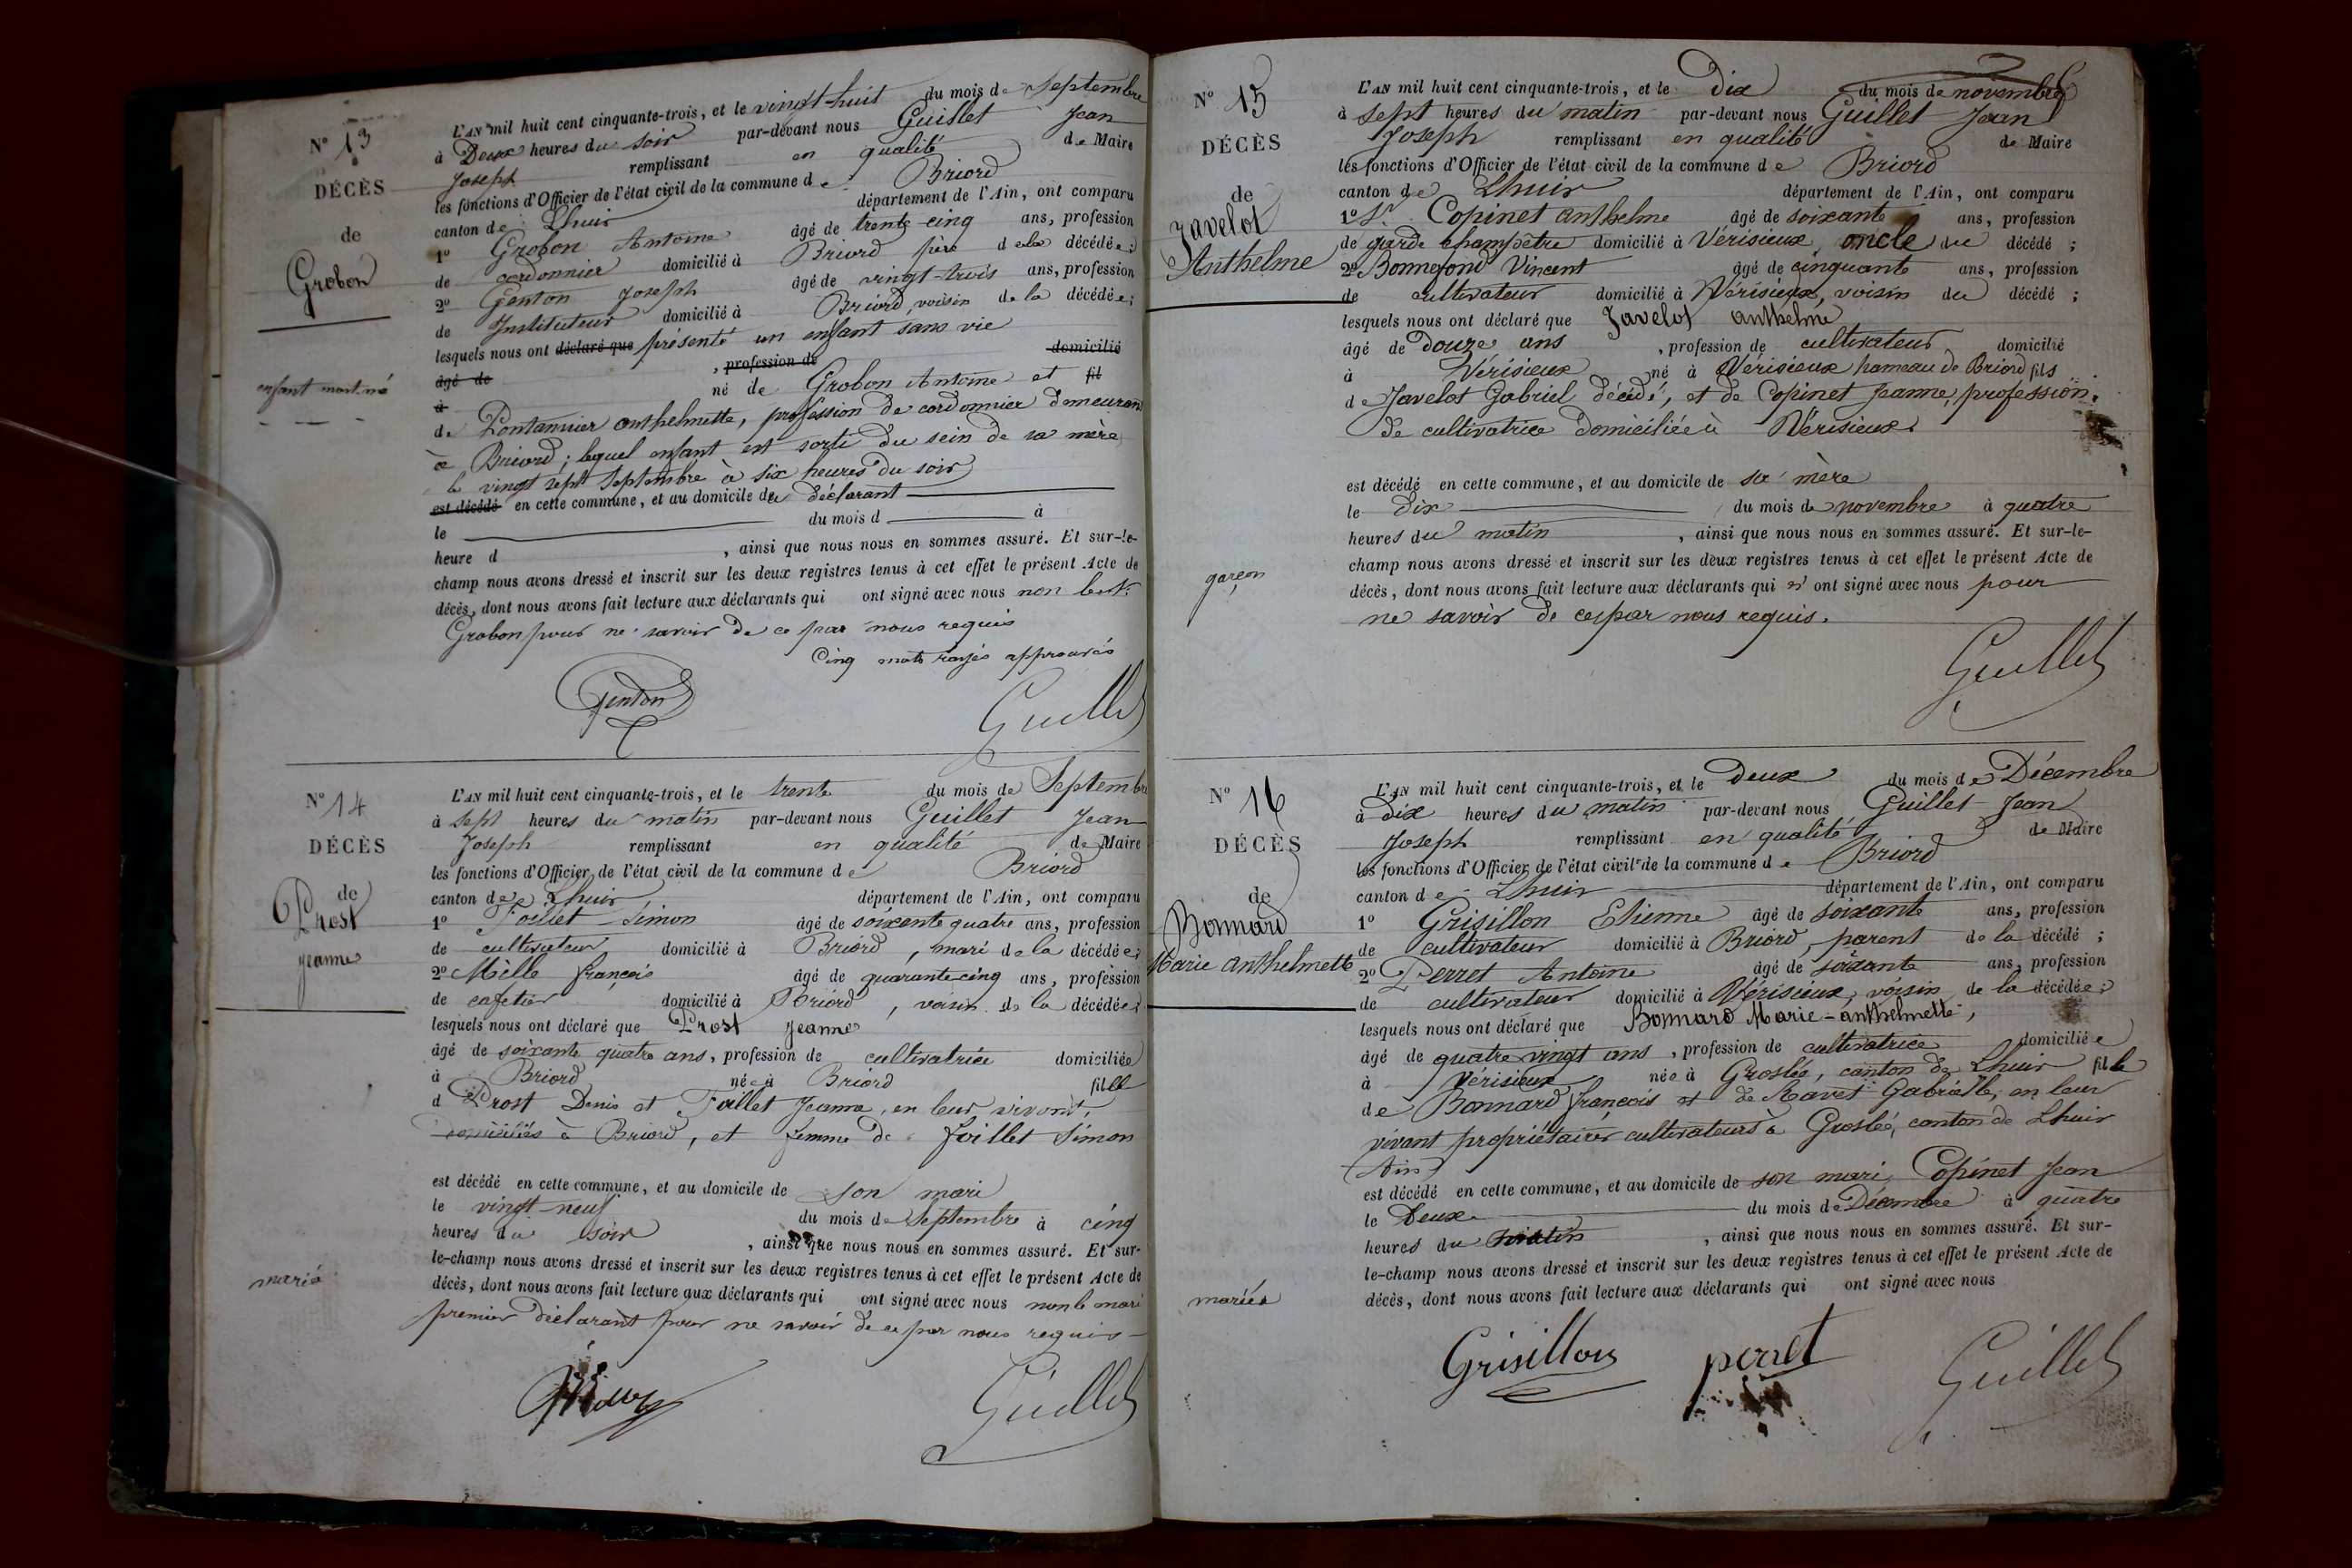 N° 13
DÉCÈS
de
Grobon
enfant mort-né
L'AN mil huit cent cinquante-trois, et le vingt-huit du mois de Septembre
à Deux heures du soir par-devant nous Guillet Jean
Joseph remplissant en qualité de Maire
les fonctions d'Officier de l'état civil de la commune de Briord
canton de Lhuis département de l'Ain, ont comparu
1° Grobon Antoine âgé de trente-cinq ans, profession
de cordonnier domicilié à Briord père de la décédée;
2° Genton Joseph âgé de vingt-trois ans, profession
de Instituteur domicilié à Briord, voisin de la décédée;
lesquels nous ont déclaré que présenté un enfant sans vie
âgé de , profession de domicilié
à né de Grobon Antoine et fil
de Pontannier anthelmette, profession de cordonnier demeurant
à Briord; lequel enfant est sorti du sein de sa mère
le vingt sept Septembre à six heures du soir
est décédé en cette commune, et au domicile du déclarant
le du mois d à
heure d , ainsi que nous nous en sommes assuré. Et sur-le-
champ nous avons dressé et inscrit sur les deux registres tenus à cet effet le présent Acte de
décès, dont nous avons fait lecture aux déclarants qui ont signé avec nous non le st.
Grobon pour ne savoir de ce par nous requis
Cinq mots rayés approuvés
Genton Guillet
N° 14
DÉCÈS
de
Prost
Jeanne
mariée
L'AN mil huit cent cinquante-trois, et le trente du mois de Septembre
à sept heures du matin par-devant nous Guillet Jean
Joseph remplissant en qualité de Maire
les fonctions d'Officier de l'état civil de la commune de Briord
canton de Lhuis département de l'Ain, ont comparu
1° Foillet Simon âgé de soixante quatre ans, profession
de cultivateur domicilié à Briord, mari de la décédée;
2° Mille françois âgé de quarante-cinq ans, profession
de cafetier domicilié à Briord, voisin de la décédée;
lesquels nous ont déclaré que Prost Jeanne
âgé de soixante quatre ans, profession de cultivatrice domiciliée
à Briord née à Briord fille
d Prost Denis et Follet Jeanne, en leur vivant,
domiciliés à Briord, et femme de foillet Simon
est décédé en cette commune, et au domicile de son mari
le vingt-neuf du mois de Septembre à cinq
heures du soir , ainsi que nous nous en sommes assuré. Et sur-
le-champ nous avons dressé et inscrit sur les deux registres tenus à cet effet le présent Acte de
décès, dont nous avons fait lecture aux déclarants qui ont signé avec nous non le mari
premier déclarant pour ne savoir de ce par nous requis
Guillet
N° 15
DÉCÈS
de
Javelot
Anthelme
garçon
L'AN mil huit cent cinquante-trois, et le Dix du mois de novembre
à sept heures du matin par-devant nous Guillet Jean
Joseph remplissant en qualité de Maire
les fonctions d'Officier de l'état civil de la commune de Briord
canton de Lhuis département de l'Ain, ont comparu
1° Sr. Copinet anthelme âgé de soixante ans, profession
de garde champêtre domicilié à Vérisieux, oncle du décédé;
2° Bonnefond Vincent âgé de cinquante ans, profession
de cultivateur domicilié à Vérisieux, voisin du décédé;
lesquels nous ont déclaré que Javelot anthelme
âgé de douze ans , profession de cultivateur domicilié
à Vérisieux né à Vérisieux hameau de Briord fils
de Javelot Gabriel décédé, et de Copinet Jeanne, profession
de cultivatrice domiciliée à Vérisieux.
est décédé en cette commune, et au domicile de sa mère
le dix du mois de novembre à quatre
heures du matin , ainsi que nous nous en sommes assuré. Et sur-le-
champ nous avons dressé et inscrit sur les deux registres tenus à cet effet le présent Acte de
décès, dont nous avons fait lecture aux déclarants qui n'ont signé avec nous pour
ne savoir de ce par nous requis.
Guillet
N° 16
DÉCÈS
de
Bonnard
Marie anthelmette
mariée
L'AN mil huit cent cinquante-trois, et le Deux du mois de Décembre
à Dix heures du matin par-devant nous Guillet Jean
Joseph remplissant en qualité de Maire
les fonctions d'Officier de l'état civil de la commune de Briord
canton de Lhuis département de l'Ain, ont comparu
1° Grisillon Etienne âgé de soixante ans, profession
de cultivateur domicilié à Briord, parent de la décédé;
2° Perret Antoine âgé de soixante ans, profession
de cultivateur domicilié à Vérisieux, voisin de la décédée;
lesquels nous ont déclaré que Bonnard Marie-anthelmette,
âgé de quatre vingt ans , profession de cultivatrice domiciliée
à Vérisieux née à Groslée, canton de Lhuis fille
de Bonnard françois et de Ravet Gabrielle, en leur
vivant propriétaires cultivateurs à Groslée, canton de Lhuis
(Ain)
est décédé en cette commune, et au domicile de son mari, Copinet Jean
le Deux du mois de Décembre à quatre
heures du matin , ainsi que nous nous en sommes assuré. Et sur-
le-champ nous avons dressé et inscrit sur les deux registres tenus à cet effet le présent Acte de
décès, dont nous avons fait lecture aux déclarants qui ont signé avec nous
Grisillon perret Guillet